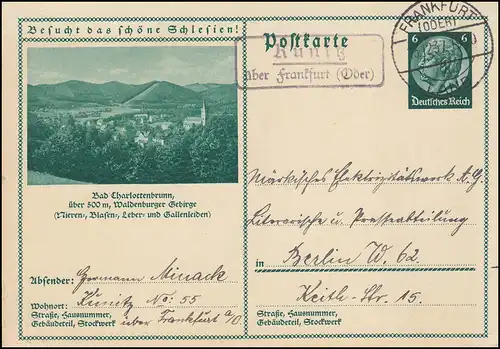 Besucht das schöne Schlesien!
Postkarte
Kunitz
über Frankfurt (Oder)
FRANKFURT
(ODER)
6 6
Deutsches Reich
Bad Charlottenbrunn,
über 500 m, Waldenburger Gebirge
(Nieren-, Blasen-, Leber- und Gallenleiden)
Märkisches Elektrizitätswerk A.G.
Literarische u. Presseabteilung
in Berlin W. 62
Keith-Str. 15.
Straße, Hausnummer,
Gebäudeteil, Stockwerk
Absender: Hermann Minack
Wohnort: Kunitz No: 55
Straße, Hausnummer,
Gebäudeteil, Stockwerk über Frankfurt a/O